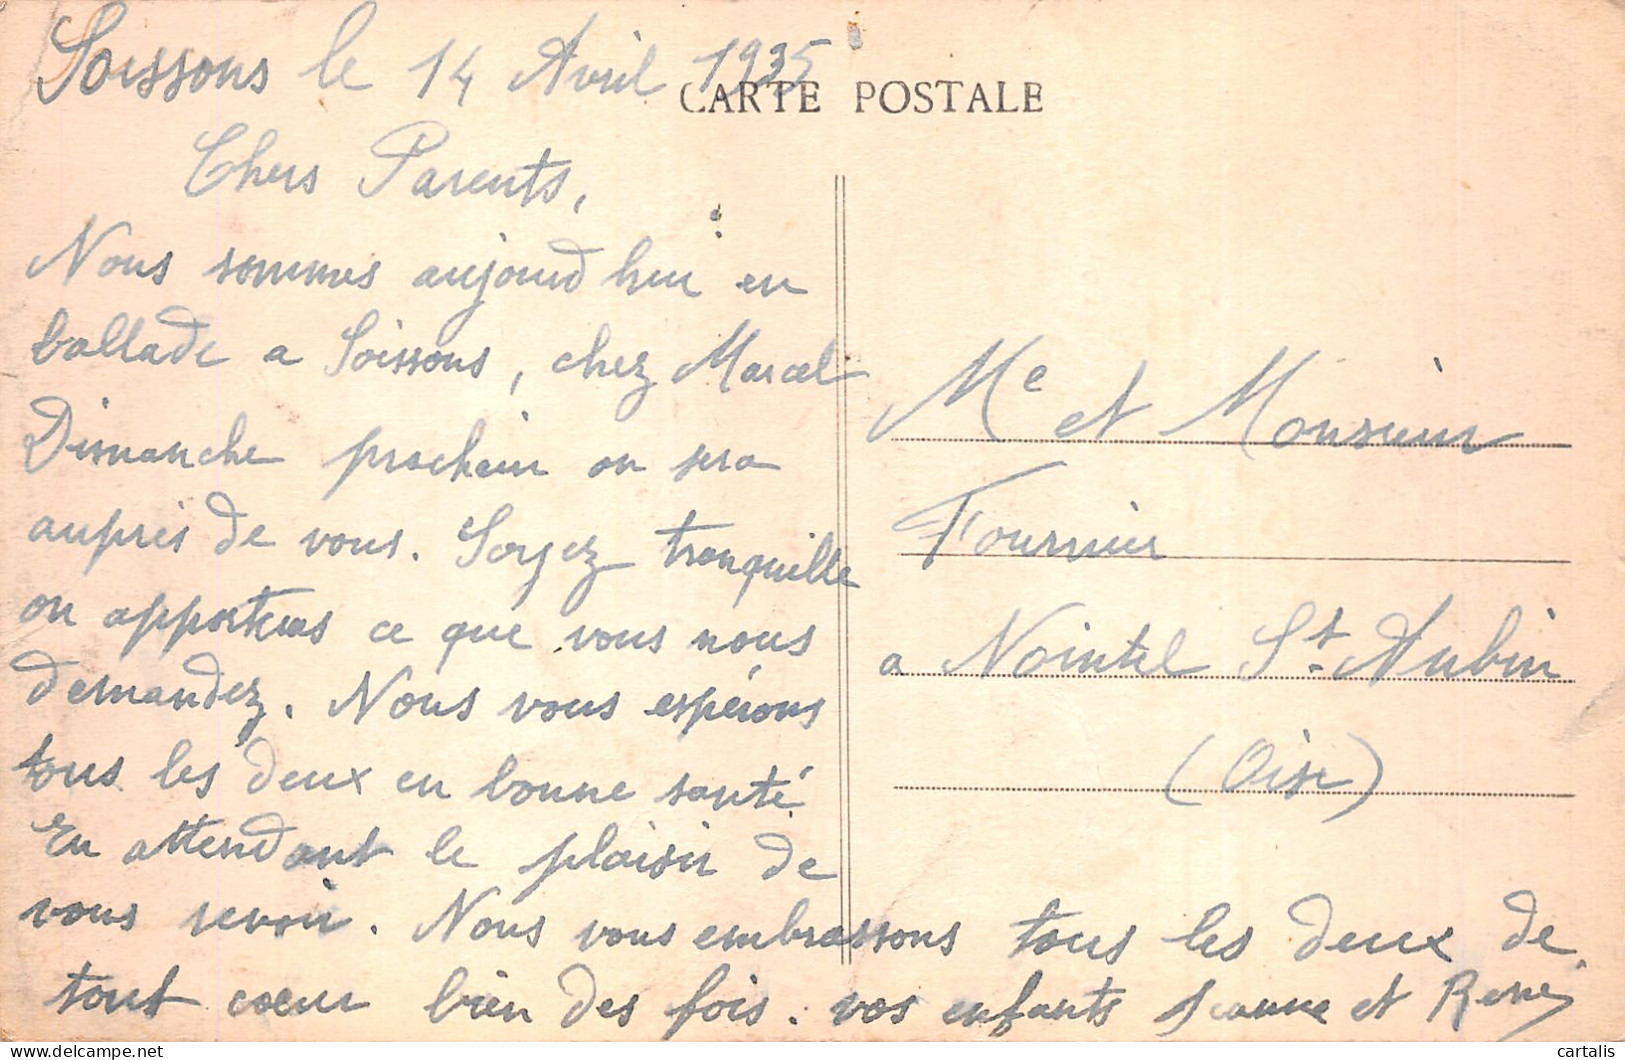 Soissons le 14 Avril 1935
CARTE POSTALE
Chers Parents,
Nous sommes aujourd hui en
ballade a Soissons, chez Marcel
Dimanche prochain on sera
auprès de vous. Soyez tranquille
on apporteras ce que vous nous
demandez. Nous vous espérons
tous les deux en bonne santé.
En attendant le plaisir de
vous revoir. Nous vous embrassons tous les deux de
tout cœur bien des fois. vos enfants Jeanne et René
Me et Monsieur
Fournier
a Nointel St. Aubin
(Oise)
delcampe.net
cartalis